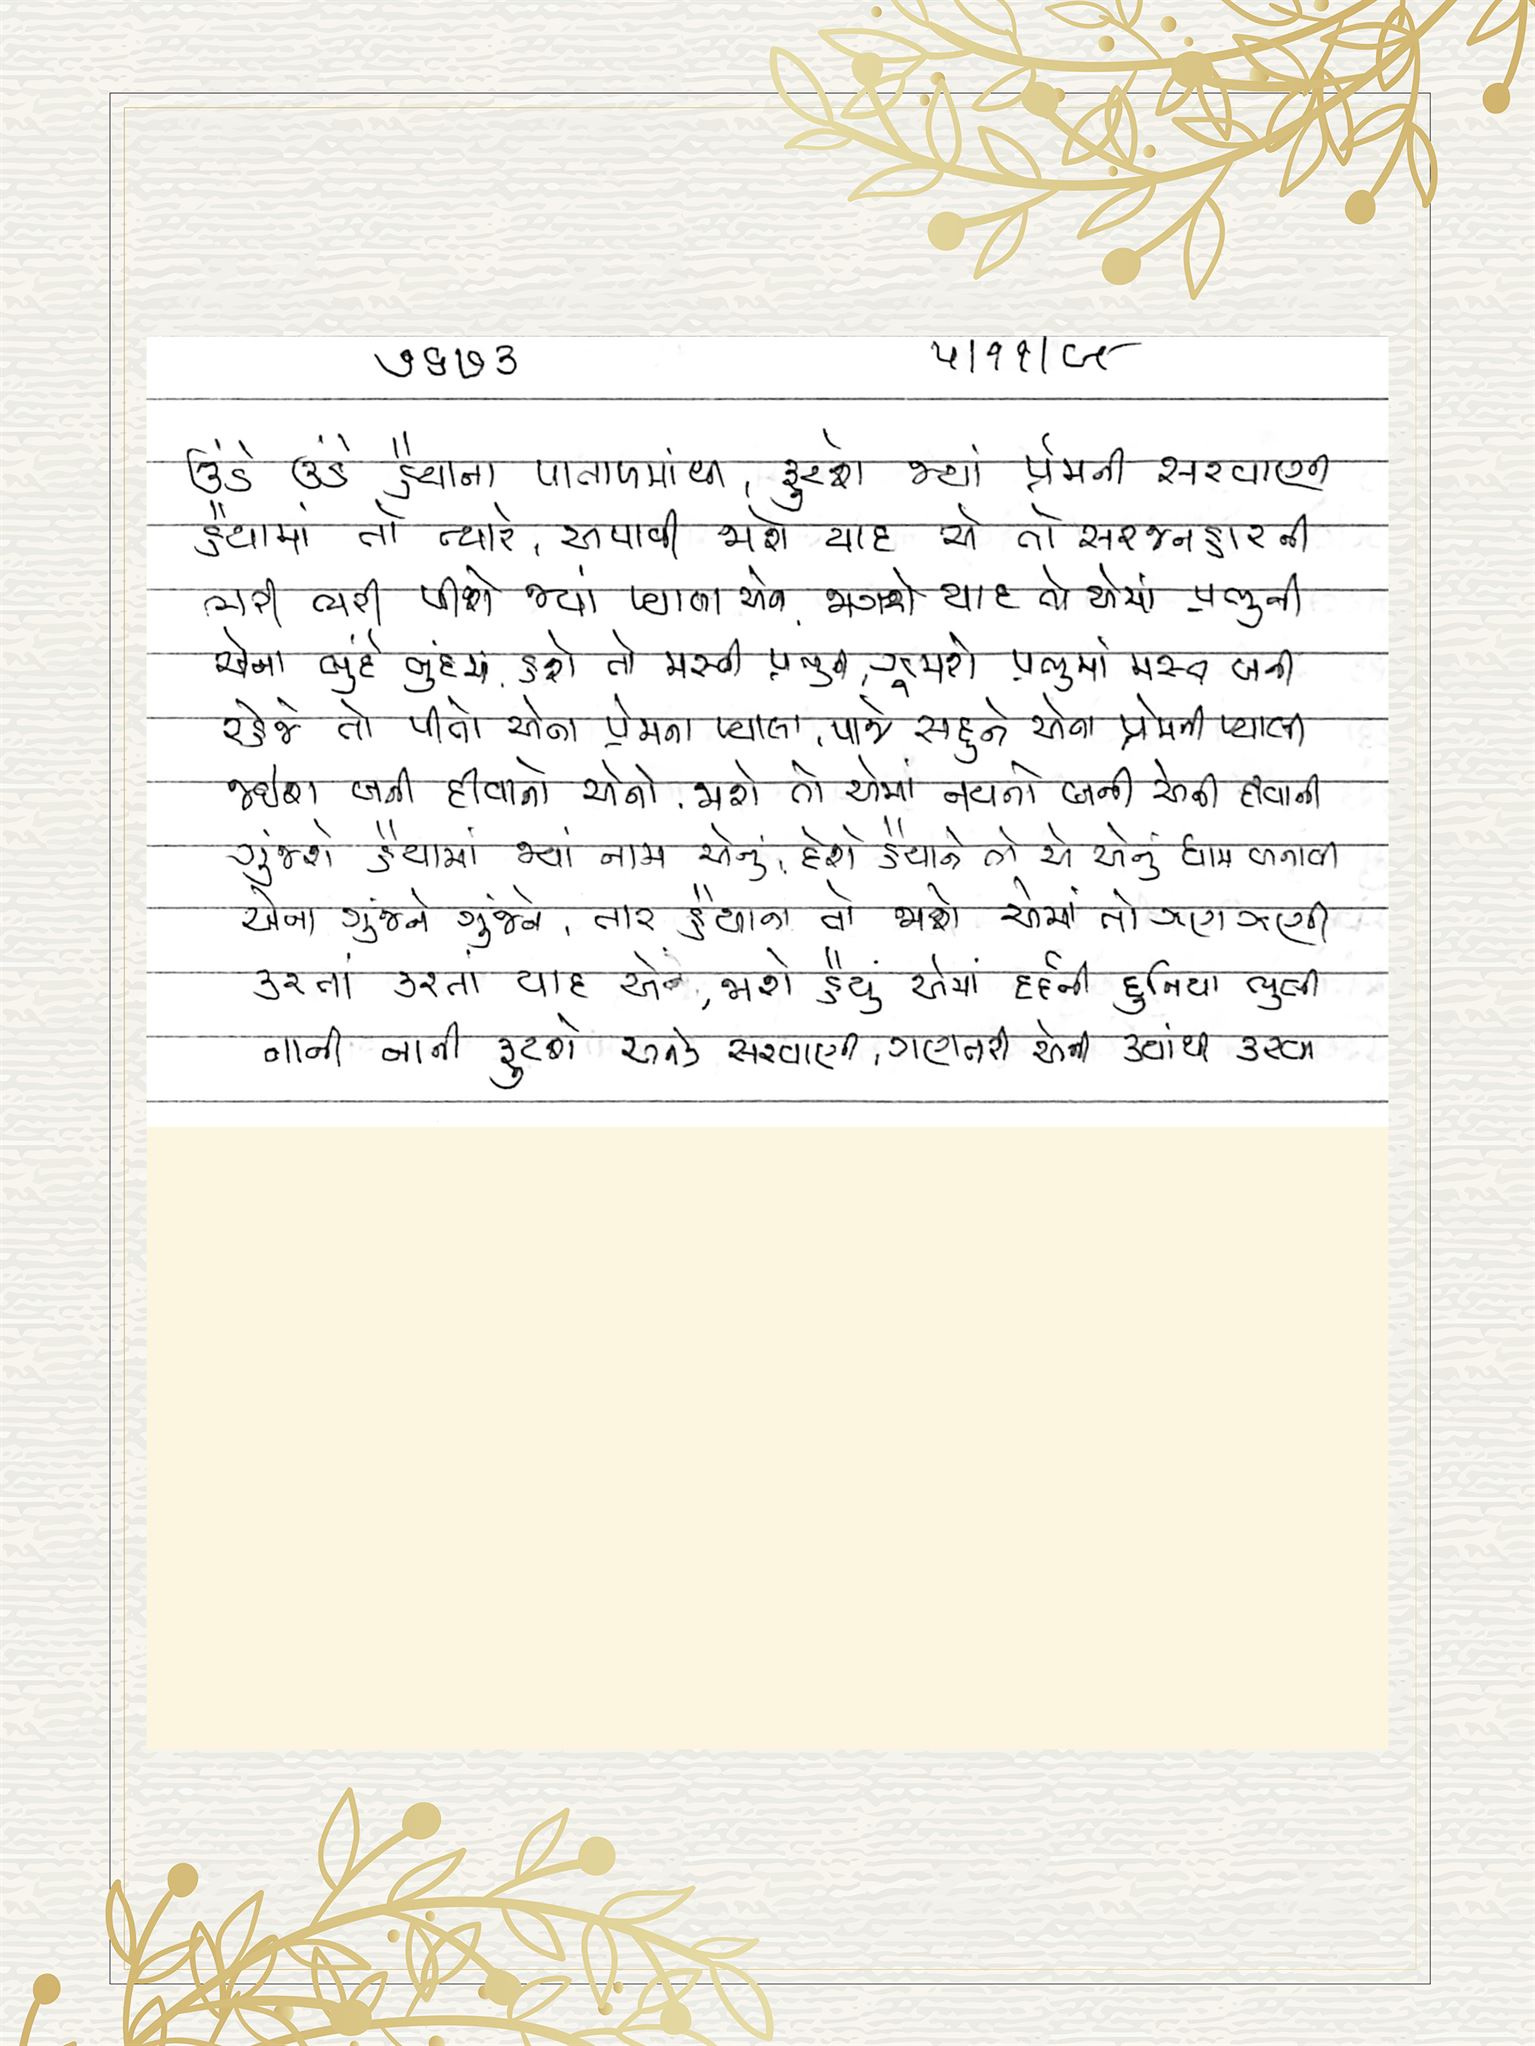 ૭૬૭૩ ૫/૧૧/૯૮
ઉંડે ઉંડે હૈયાના પાતાળમાંથી, ફુટશે જ્યાં પ્રેમની સરવાણી
હૈયામાં તો ત્યારે, અપાવી જાશે યાદ એ તો સરજનહારની
ભરી ભરી પીશો જ્યાં પ્યાલા એના, જાગશે યાદ તો એમાં પ્રભુની
એના બુંદે બુંદમાં, હશે તો મસ્તી પ્રભુની, ઝૂમશો પ્રભુમાં મસ્ત બની
રહેજે તો પીતો એના પ્રેમના પ્યાલા, પાજે સહુને એના પ્રેમની પ્યાલી
જાઈશ બની દીવાનો એનો, જાશે તો એમાં નયનો બની એની દીવાની
ગુંજશે હૈયામાં જ્યાં નામ એનું, દેશે હૈયાને તો એ એનું ધામ બનાવી
એના ગુંજને ગુંજને, તાર હૈયાના તો જાશે એમાં તો ઝણ ઝણી
કરતાં કરતાં યાદ એને, જાશે હૈયું એમાં દર્દની દુનિયા ભુલી
નાની નાની ફુટશે અનેક સરવાણી, ગણતરી એની ક્યાંથી કરવી